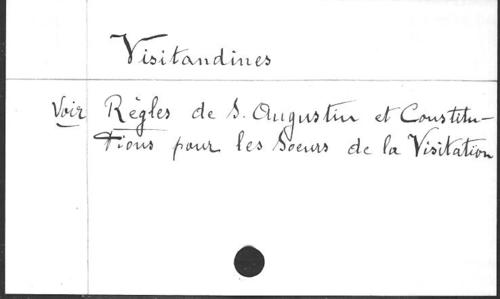 Visitandines
Voir Règles de S. Augustin et Constitu-
tions pour les Soeurs de la Visitation